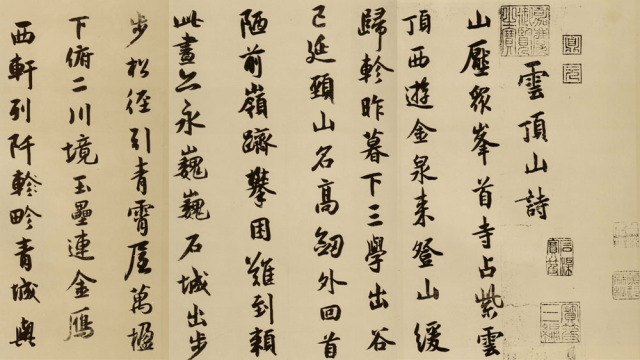 雲頂山詩
山壓衆峯首寺占紫雲
頂西遊金泉來登山緩
歸軫昨暮下三學出谷
已延頸山名高劒外回首
陋前嶺躋攀困難到賴
此晝亦永巍巍石城出步
步松徑引青霄屋萬楹
下俯二川境玉壘連金鴈
西軒列阡軫畛青城與